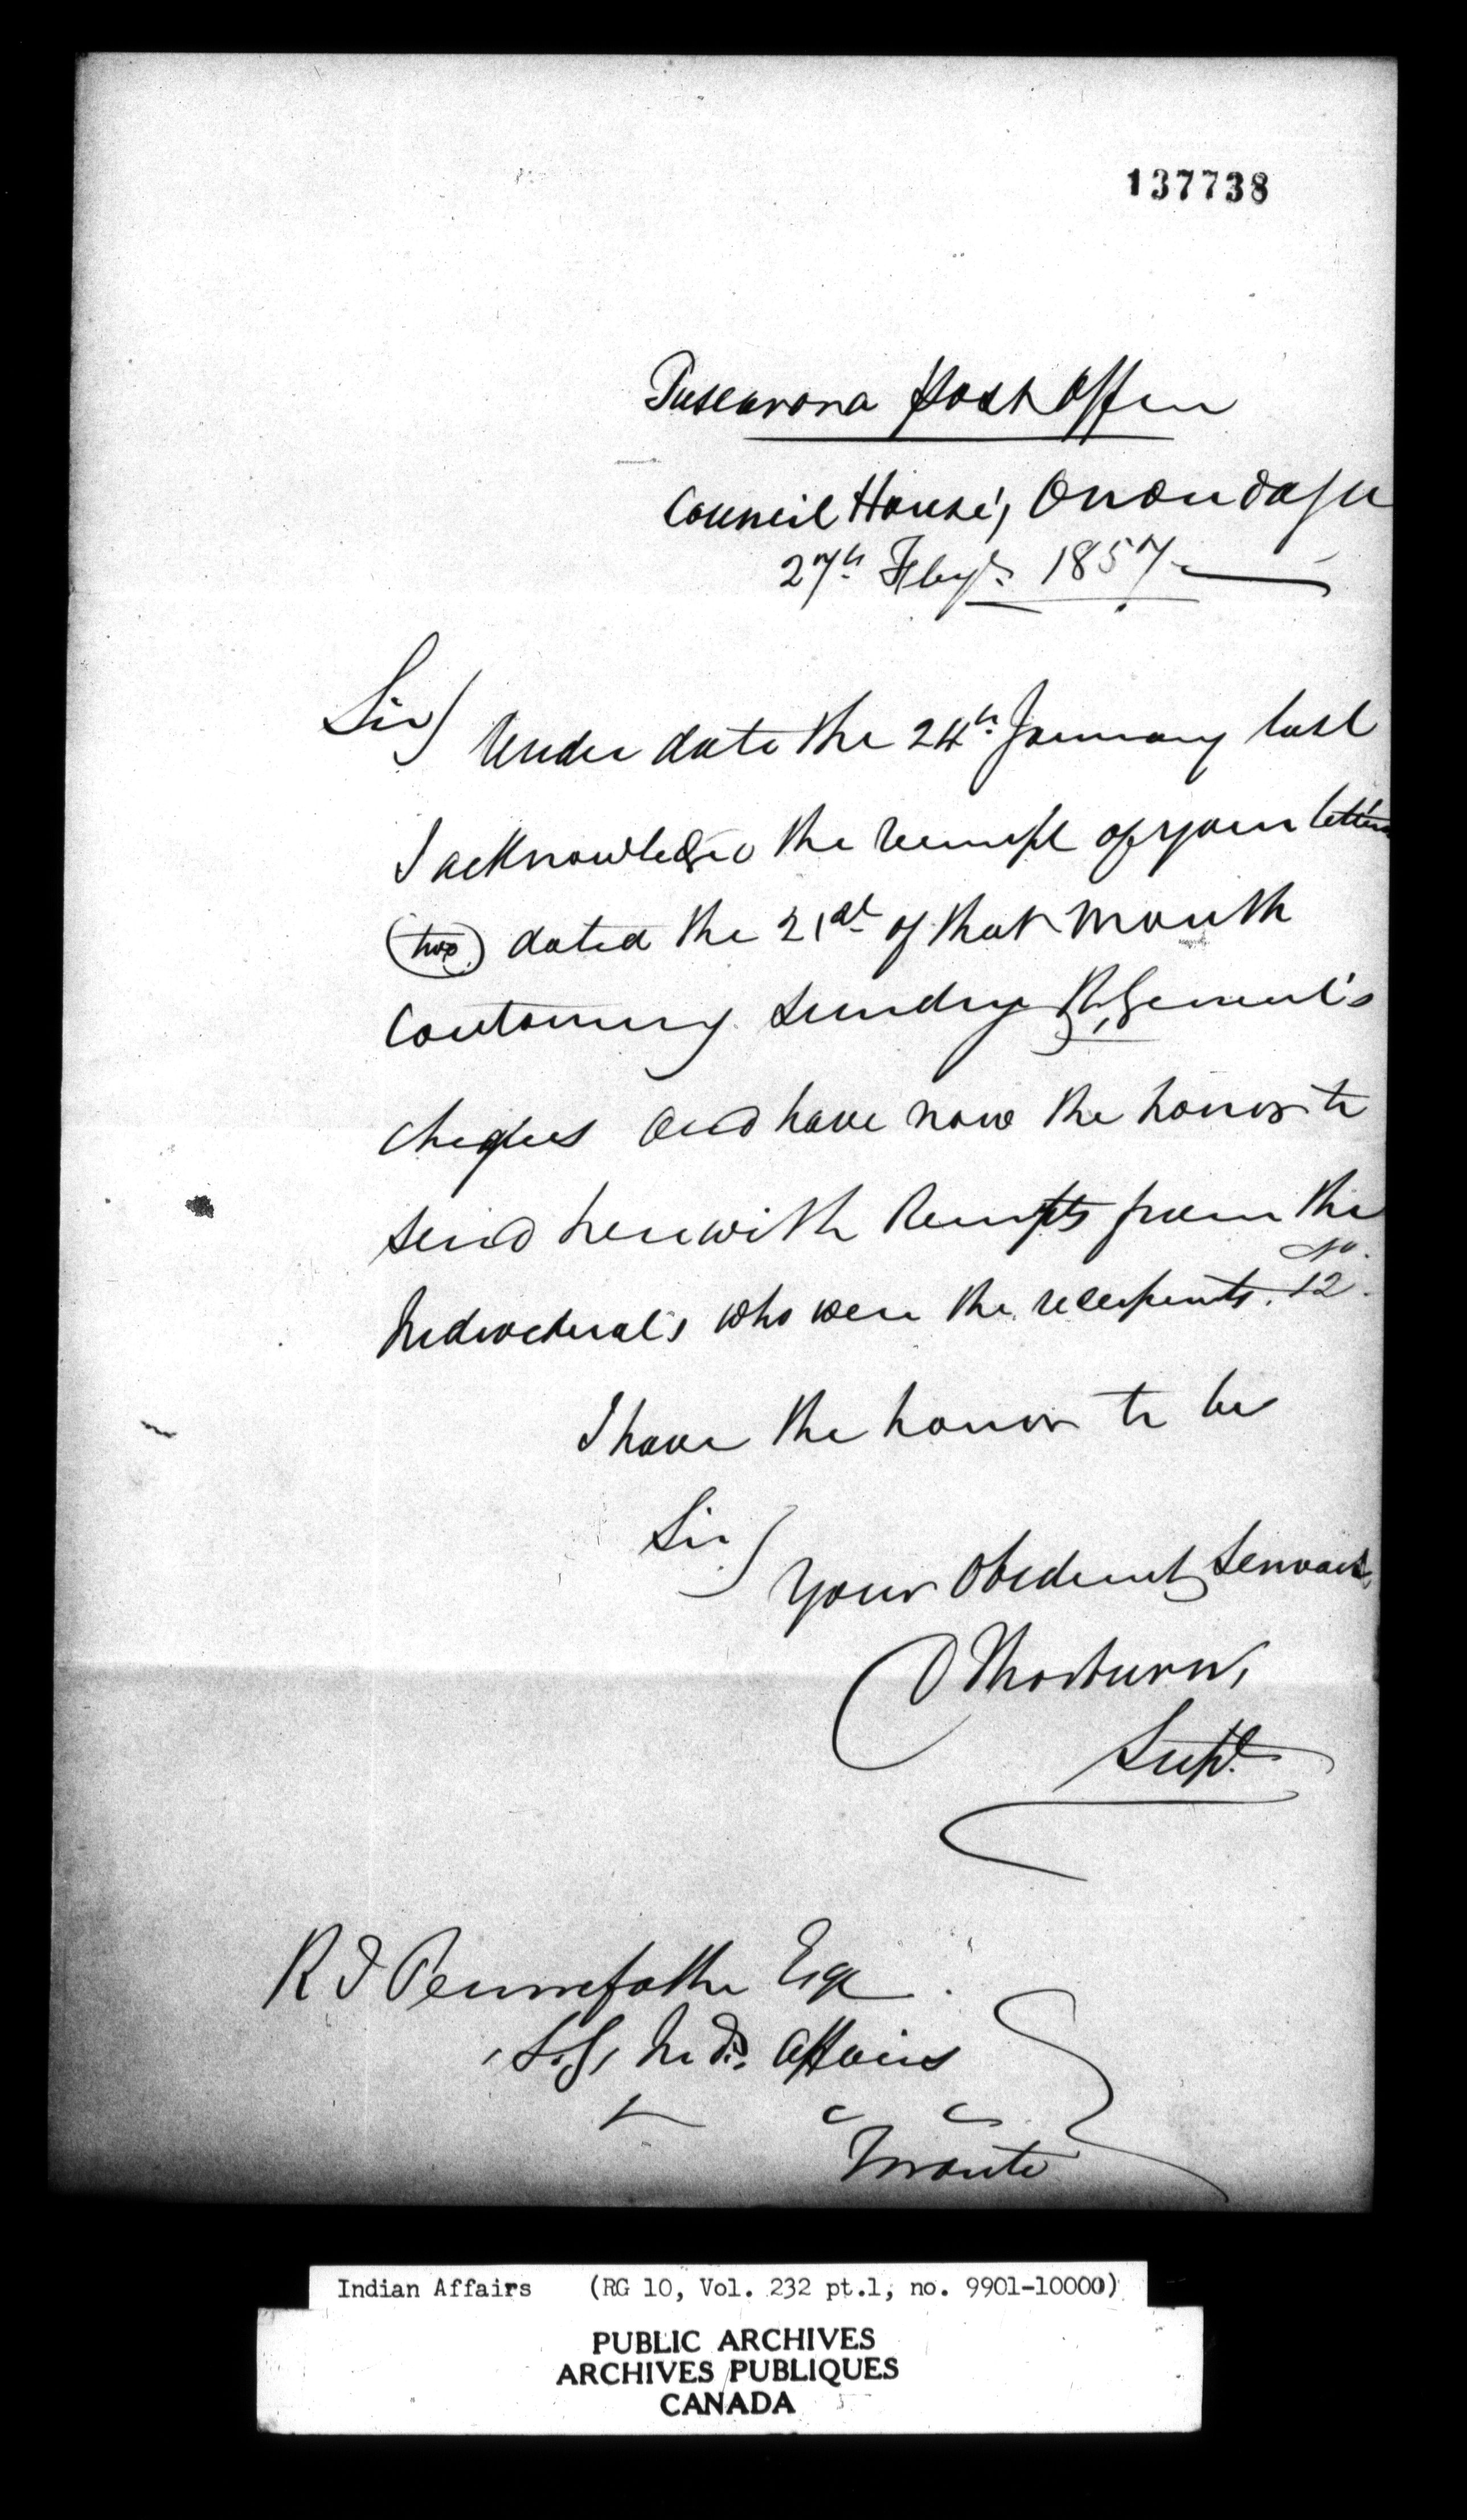 137738
Tuscarora Post Office
Council House, Onondaga
27th Feby. 1857
Sir) Under date the 24th January last
I acknowledged the receipt of your letters
(two) dated the 21st of that month
Containing sundry R. General's
cheques and have now the honor to
send herewith Receipts from the
Individual's who were the recepients. No. 12.
I have the honor to be
Sir)
Your Obedient Servant,
D Thorburn,
Supt.
R T Pennefather Esqr
S. G, Ind. Affairs
Toronto
Indian Affairs (RG 10, Vol. 232 pt.1, no. 9901-10000)
PUBLIC ARCHIVES
ARCHIVES PUBLIQUES
CANADA